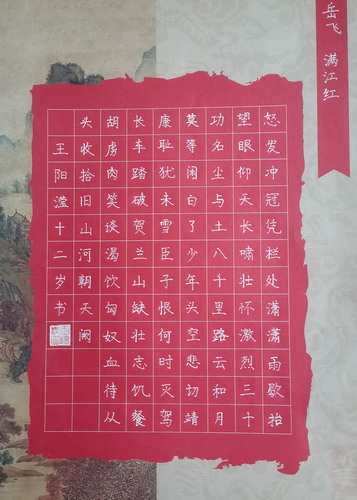 岳飞 满江红
怒发冲冠凭栏处潇潇雨歇抬
望眼仰天长啸壮怀激烈三十
功名尘与土八千里路云和月
莫等闲白了少年头空悲切靖
康耻犹未雪臣子恨何时灭驾
长车踏破贺兰山缺壮志饥餐
胡虏肉笑谈渴饮匈奴血待从
头收拾旧山河朝天阙
王阳滢十二岁书